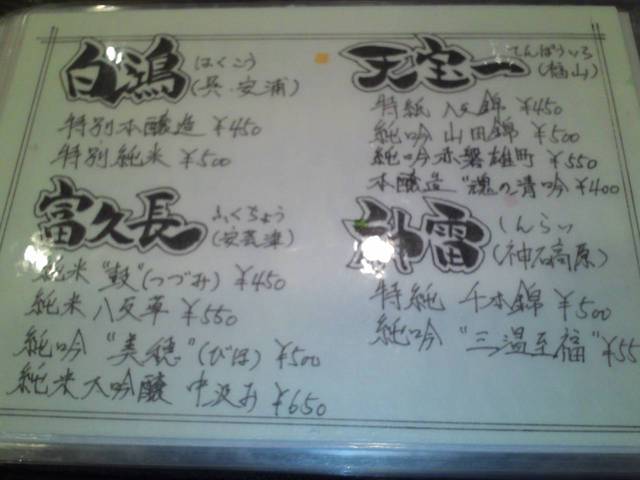 白鴻 はくこう
(呉・安浦)
特別本醸造 ¥450
特別純米 ¥500
富久長 ふくちょう
(安芸津)
純米 "鼓"(つづみ) ¥450
純米 八反草 ¥550
純吟 "美穂"(びほ) ¥500
純米大吟醸 中汲み ¥650
天宝一 てんぽういち
(福山)
特純 八反錦 ¥450
純吟 山田錦 ¥500
純吟 赤磐雄町 ¥550
本醸造 "魂の清吟 ¥400
神雷 しんらい
(神石高原)
特純 千本錦 ¥500
純吟 "三温至福" ¥55